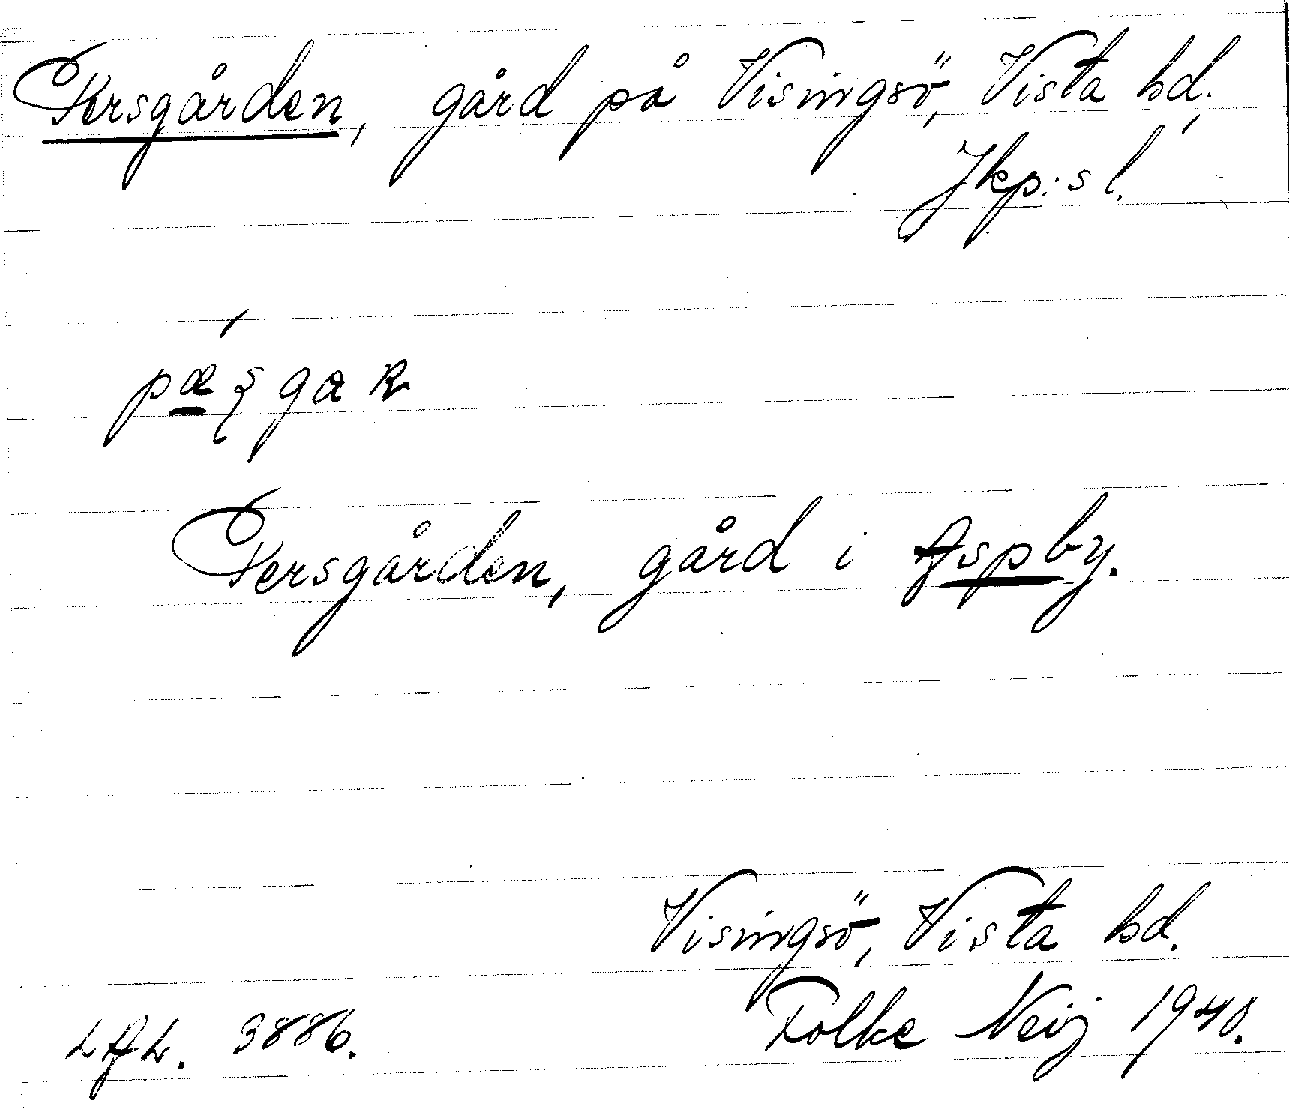 Persgården, gård på Visingsö, Vista hd,
Jkp:s l.
Persgården, gård i Aspby.
Visingsö, Vista hd.
Folke Neij 1940.
LAL. 3886.